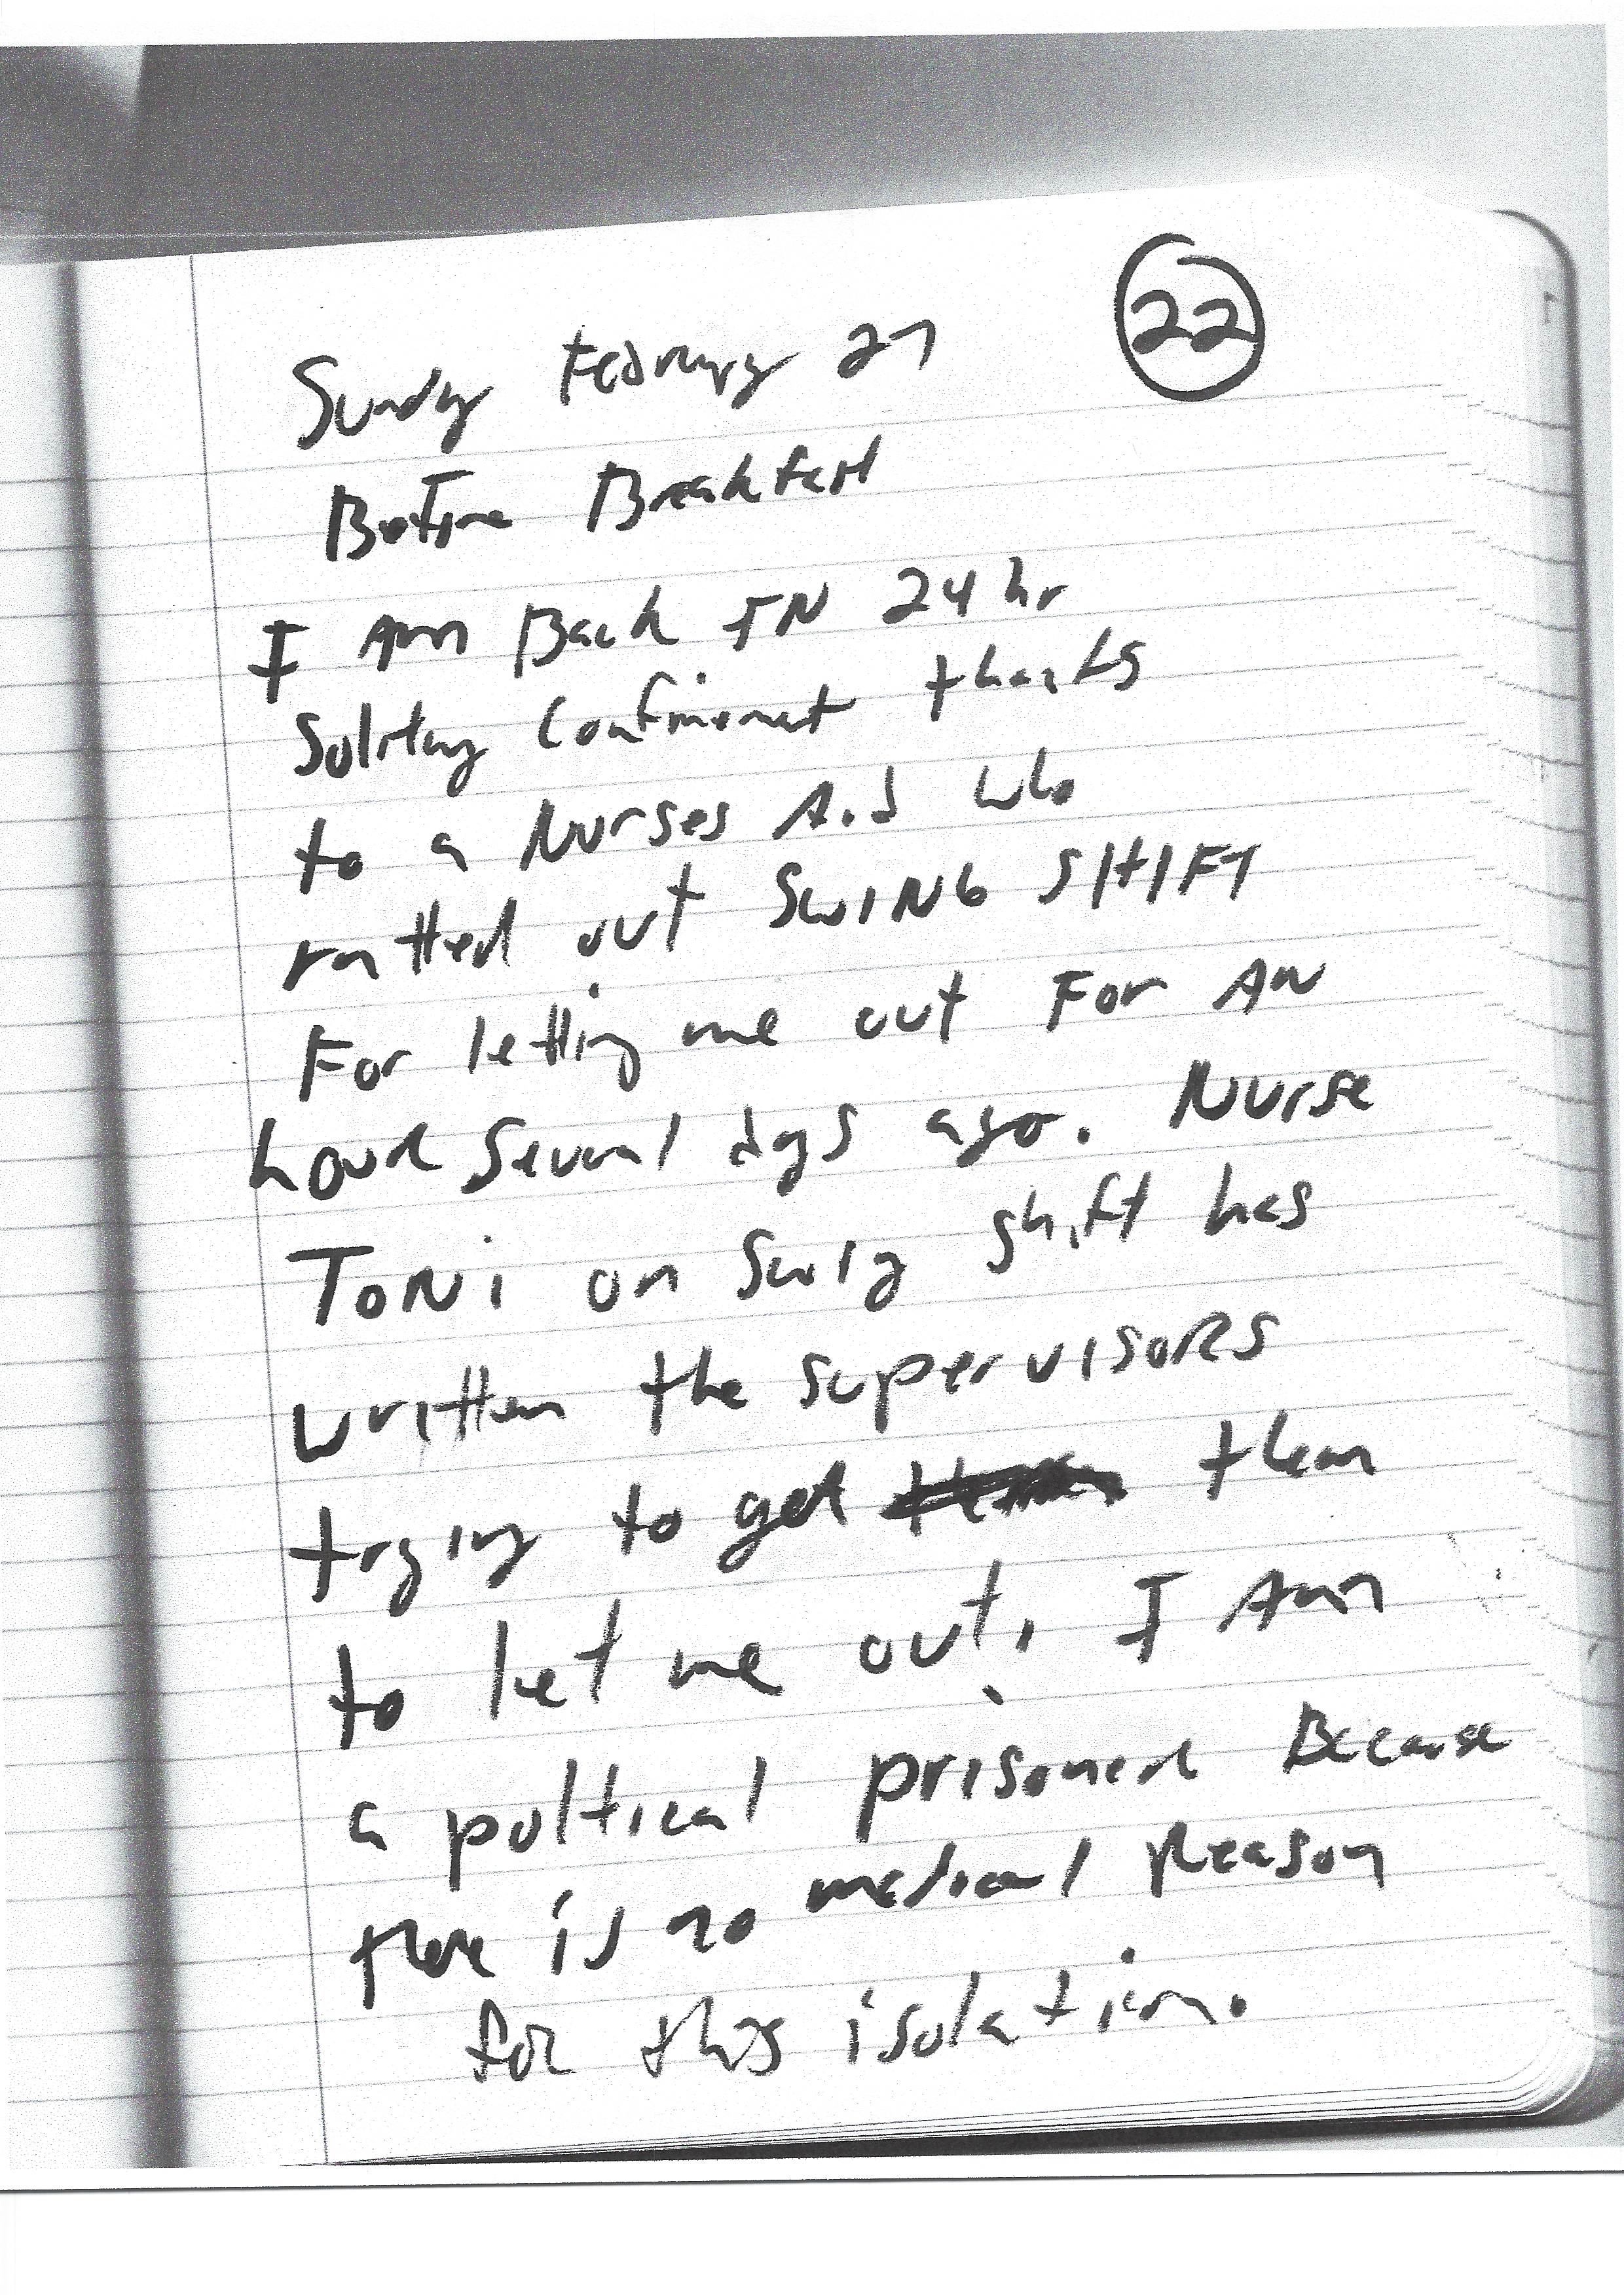 22
Sunday February 27
Before Breakfast
I Am Back IN 24 hr
Solitary Confinement thanks
to a Nurses Aid who
ratted out SWING SHIFT
For letting me out For AN
hour Several days ago. Nurse
TONi on Swing shift has
written the supervisors
trying to get them
to let me out. I Am
a political prisoner Because
there is no medical Reason
for this isolation.